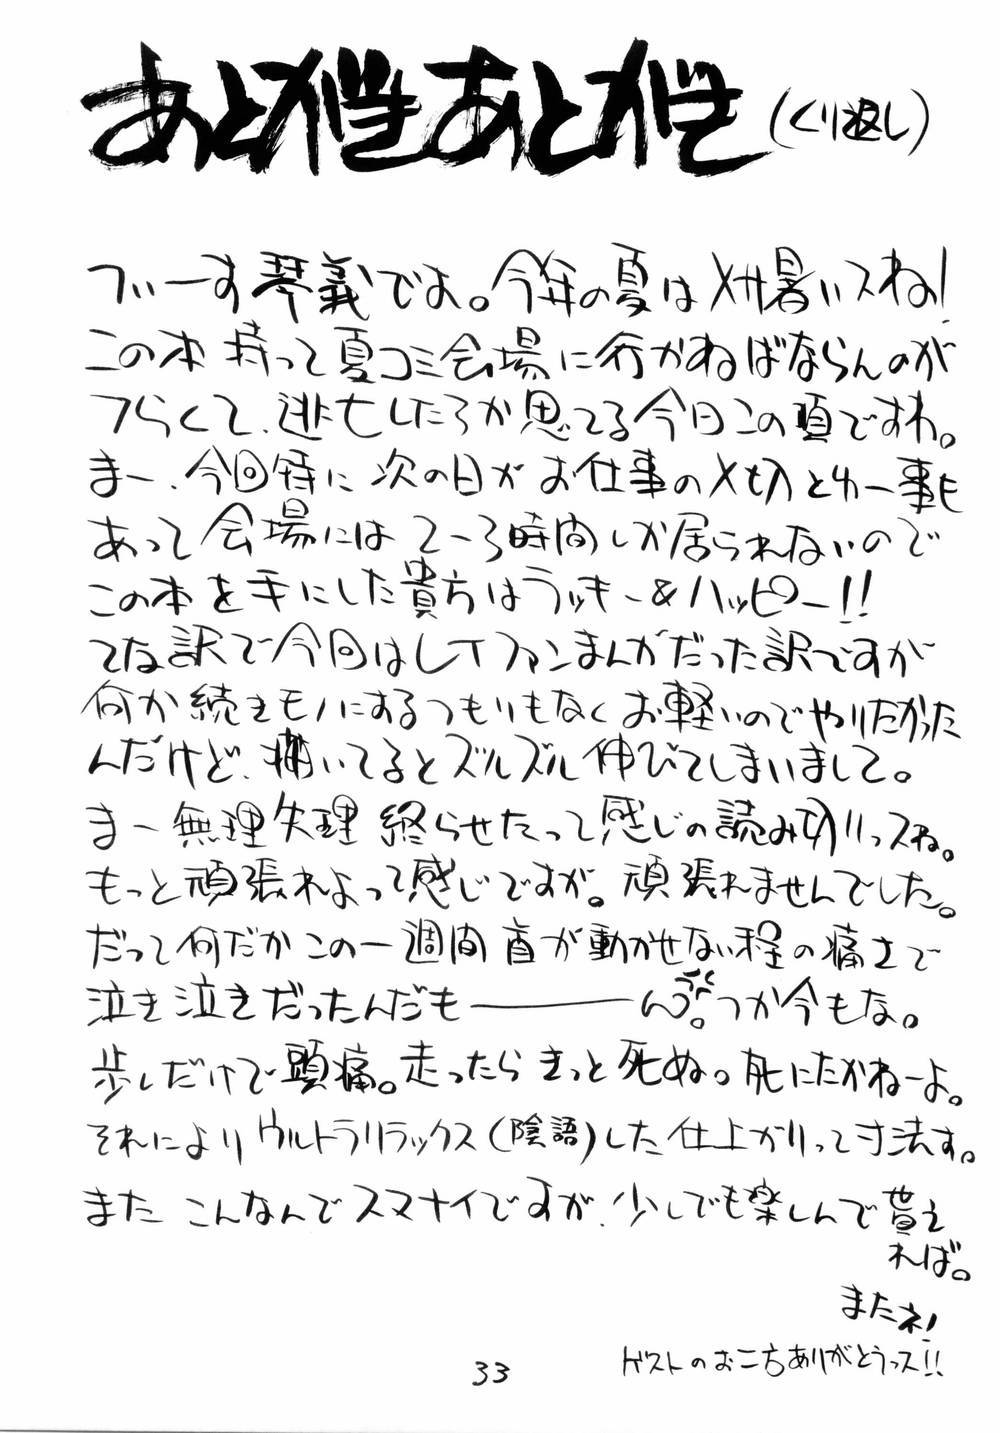 あとがきあとがき(くり返し)
づぃーす琴義でよ。今年の夏はメサ暑いスね!
この本持って夏コミ会場に行かねばならんのが
つらくて、逃亡したろか思てる今日この頃ですわ。
まー、今回特に次の日がお仕事の〆切とゆー事も
あって会場には2〜3時間しか居られないので
この本を手にした貴方はラッキー&ハッピー!!
てな訳で今回はLFファンまんがだった訳ですが
何か続きモノにするつもりもなくお軽いのでやりたかった
んだけど、描いてるとズルズル伸びてしまいまして。
まー無理失理終らせたって感じの読み切りっスね。
もっと頑張れよって感じですが。頑張れませんでした。
だって何だかこの一週間首が動かせない程の痛さで
泣き泣きだったんだも―――ん。つか今もな。
歩くだけで頭痛。走ったらきっと死ぬ。死にたかねーよ。
それによりウルトラリラックス(陰語)した仕上がりって寸法す。
またこんなんでスマナイですが、少しでも楽しんで貰え
れば。
またネ!
ゲストのお二方ありがとうっス!!
33